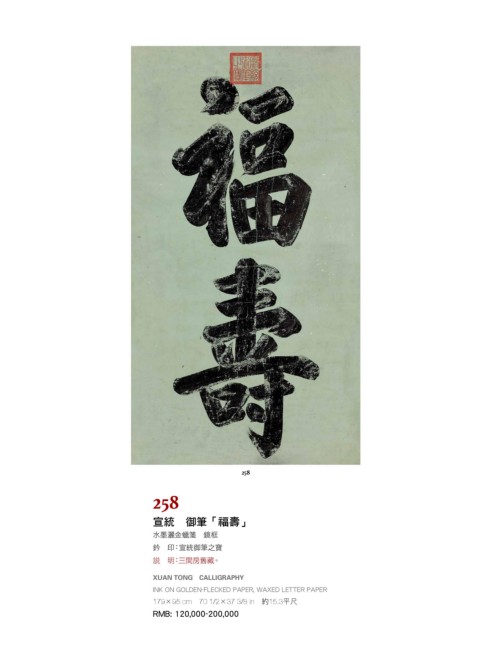 福
壽
258
258
宣統　御筆「福壽」
水墨灑金蠟箋　鏡框
鈐　印：宣統御筆之寶
説　明：三間房舊藏。
XUAN TONG　CALLIGRAPHY
INK ON GOLDEN-FLECKED PAPER, WAXED LETTER PAPER
179×95 cm　70 1/2×37 3/8 in　約15.3平尺
RMB: 120,000-200,000